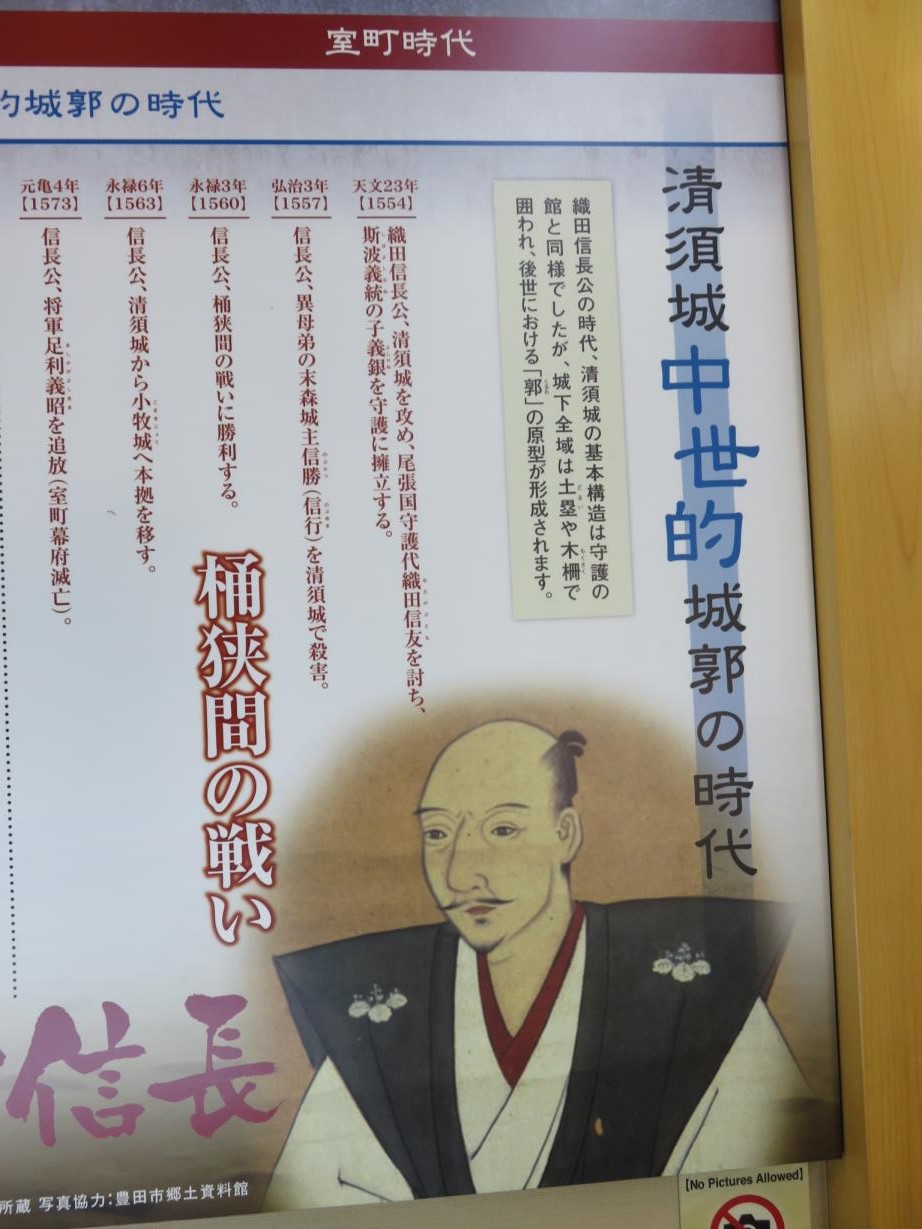 室町時代
的城郭の時代
清須城中世的城郭の時代
織田信長公の時代、清須城の基本構造は守護の
館と同様でしたが、城下全域は土塁や木柵で
囲われ、後世における「郭」の原型が形成されます。
天文23年
【1554】
織田信長公、清須城を攻め、尾張国守護代織田信友を討ち、
斯波義統の子義銀を守護に擁立する。
弘治3年
【1557】
信長公、異母弟の末森城主信勝(信行)を清須城で殺害。
永禄3年
【1560】
信長公、桶狭間の戦いに勝利する。
桶狭間の戦い
永禄6年
【1563】
信長公、清須城から小牧城へ本拠を移す。
元亀4年
【1573】
信長公、将軍足利義昭を追放(室町幕府滅亡)。
信長
所蔵 写真協力:豊田市郷土資料館
【No Pictures Allowed】